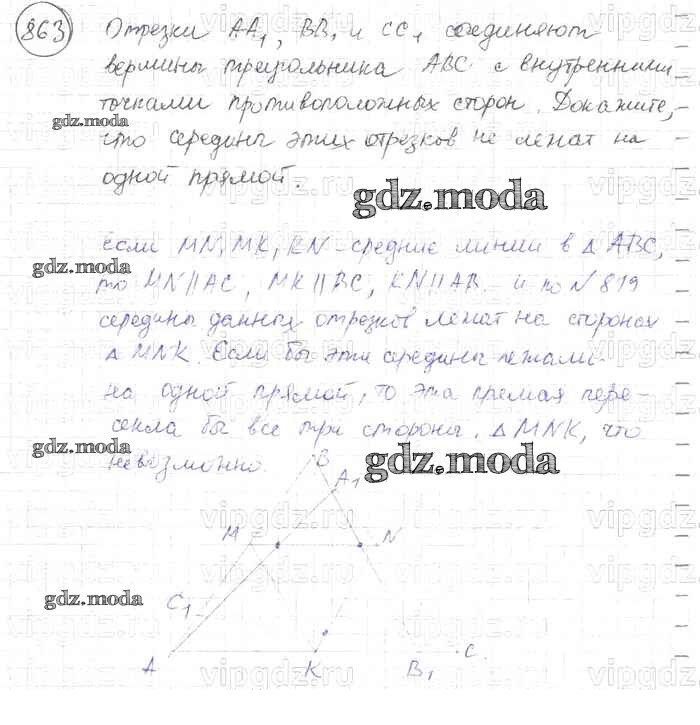 863 Отрезки AA₁, BB₁ и CC₁ соединяют
вершины треугольника ABC с внутренними
точками противоположных сторон. Докажите,
gdz.moda
что середины этих отрезков не лежат на
одной прямой.
gdz.moda
Если MN, MK, KN - средние линии в △ ABC,
gdz.moda
то MN || AC, MK || BC, KN || AB и по № 819
середины данных отрезков лежат на сторонах
△ MNK. Если бы эти середины лежали
на одной прямой, то эта прямая пере-
секла бы все три стороны △ MNK, что
gdz.moda
невозможно.
gdz.moda
B
A₁
M
N
gdz.moda
C₁
A
K
B₁
C
vipgdz.com